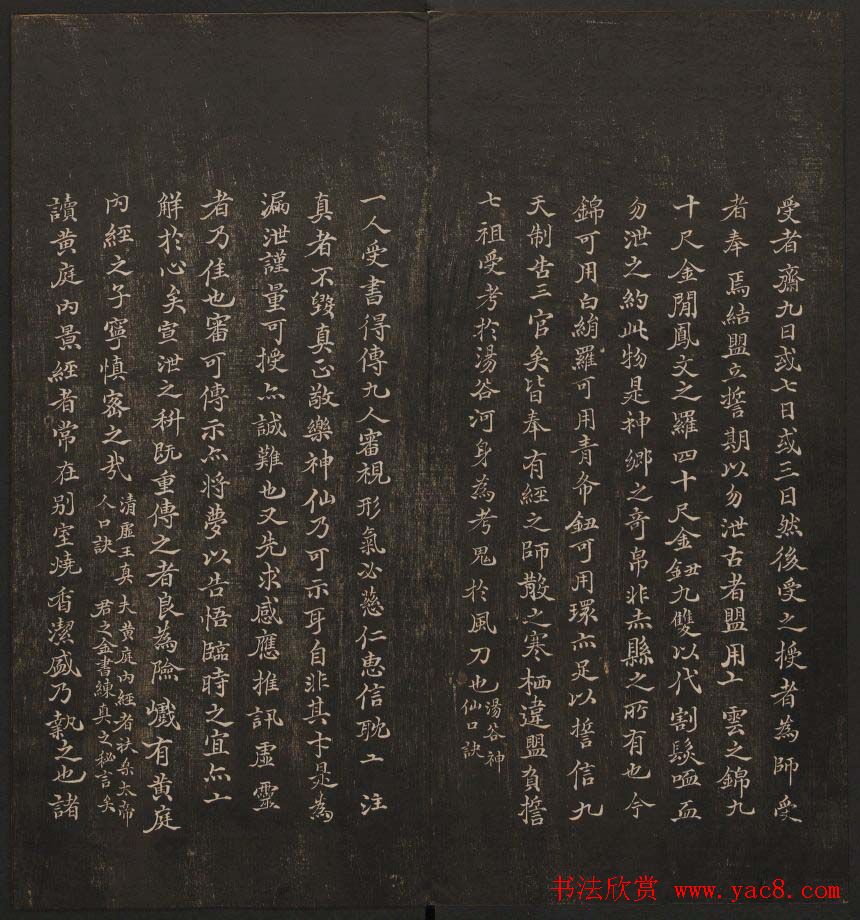 受者齋九日或七日或三日然後受之授者為師受
者奉焉結盟立誓期以勿泄古者盟用亠雲之錦九
十尺金間鳳文之羅四十尺金鈕九雙以代割髮唖血
勿泄之約此物是神鄉之奇帛非赤縣之所有也今
錦可用白絹羅可用青布鈕可用環亦足以誓信九
天制告三官矣皆奉有經之師散之寒栖違盟負誓
七祖受考於湯谷河身為考鬼於風刀也湯谷神
仙口訣
一人受書得傳九人審視形氣必慈仁惠信耽亠注
真者不毀真正敬樂神仙乃可示耳自非其才是為
漏泄謹量可授亦誠難也又先求感應推訊虛靈
者乃佳也審可傳示亦將夢以告悟臨時之宜亦亠
解於心矣宣泄之科既重傳之者良為險巇有黃庭
內經之子寧慎密之哉清虛王真
人口訣
夫黃庭內經者扶桑太帝
君之金書練真之秘言矣
讀黃庭內景經者常在別室燒香潔盛乃執之也諸
书法欣赏 www.yac8.com